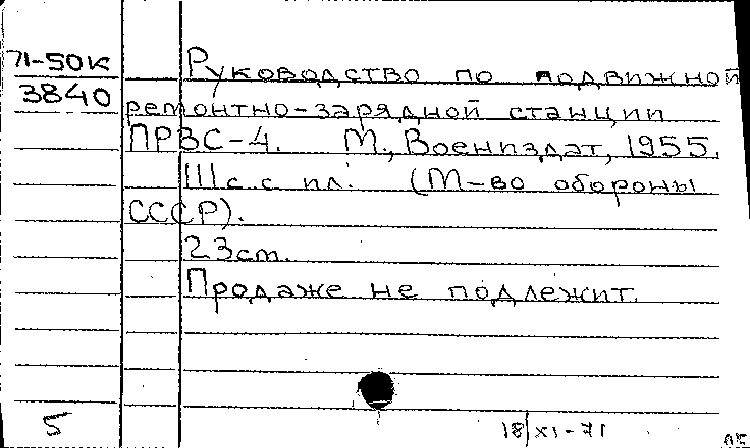 71-50к
3840
Руководство по подвижной
ремонтно-зарядной станции
ПРЗС-4. М., Воениздат, 1955.
111 с. с пл. (М-во обороны
СССР).
23 см.
Продаже не подлежит.
5
18/XI-71